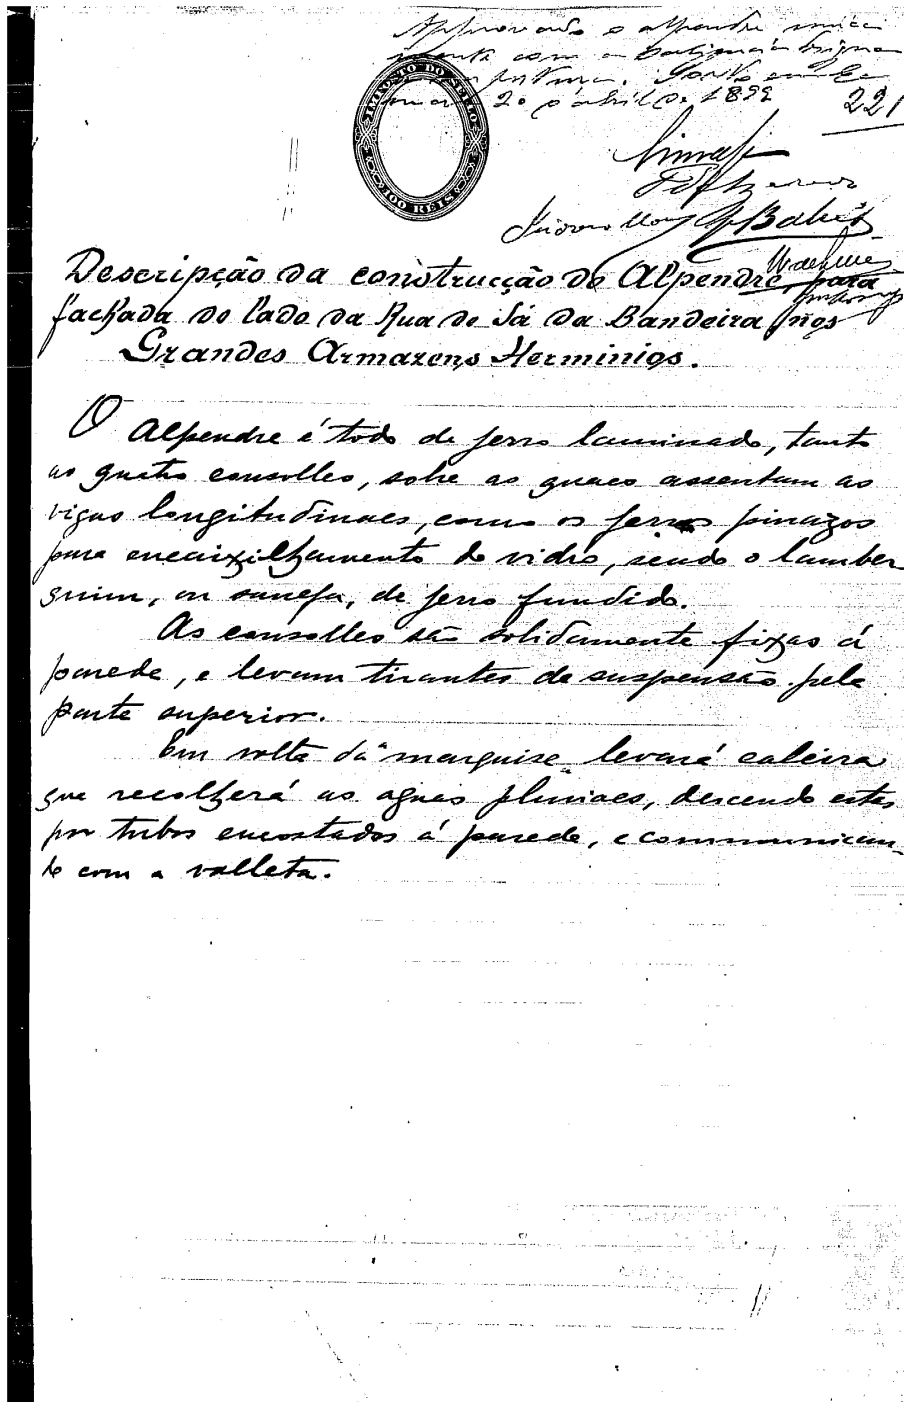 Approvado o alpendre unica
mente com a
20 d'abril de 1892
221
IMPOSTO DO SELLO
100 REIS
Descripção da construcção do Alpendre, para
fachada do lado da Rua de Sá da Bandeira nos
Grandes Armazens Herminios.
O Alpendre é todo de ferro laminado, tanto
as quatro consolles, sobre as quaes assentam as
vigas longitudinaes, como os ferros pinazos
para encaixilhamento do vidro, sendo o lamber
quim, ou sanefa, de ferro fundido.
As consolles são solidamente fixas á
parede, e levam tirantes de suspensão pela
parte superior.
Em volta da "marquise" levará caleira
que recolherá as aguas pluviaes, descendo estas
por tubos encostados á parede, e communican-
do com a valleta.